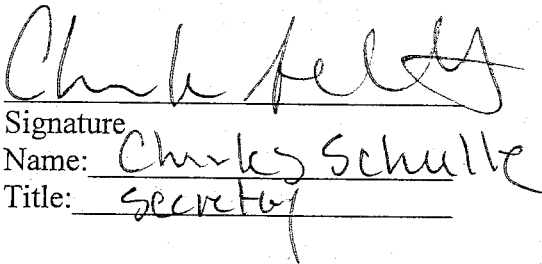 Signature
Name: Charles Schulte
Title: Secretary